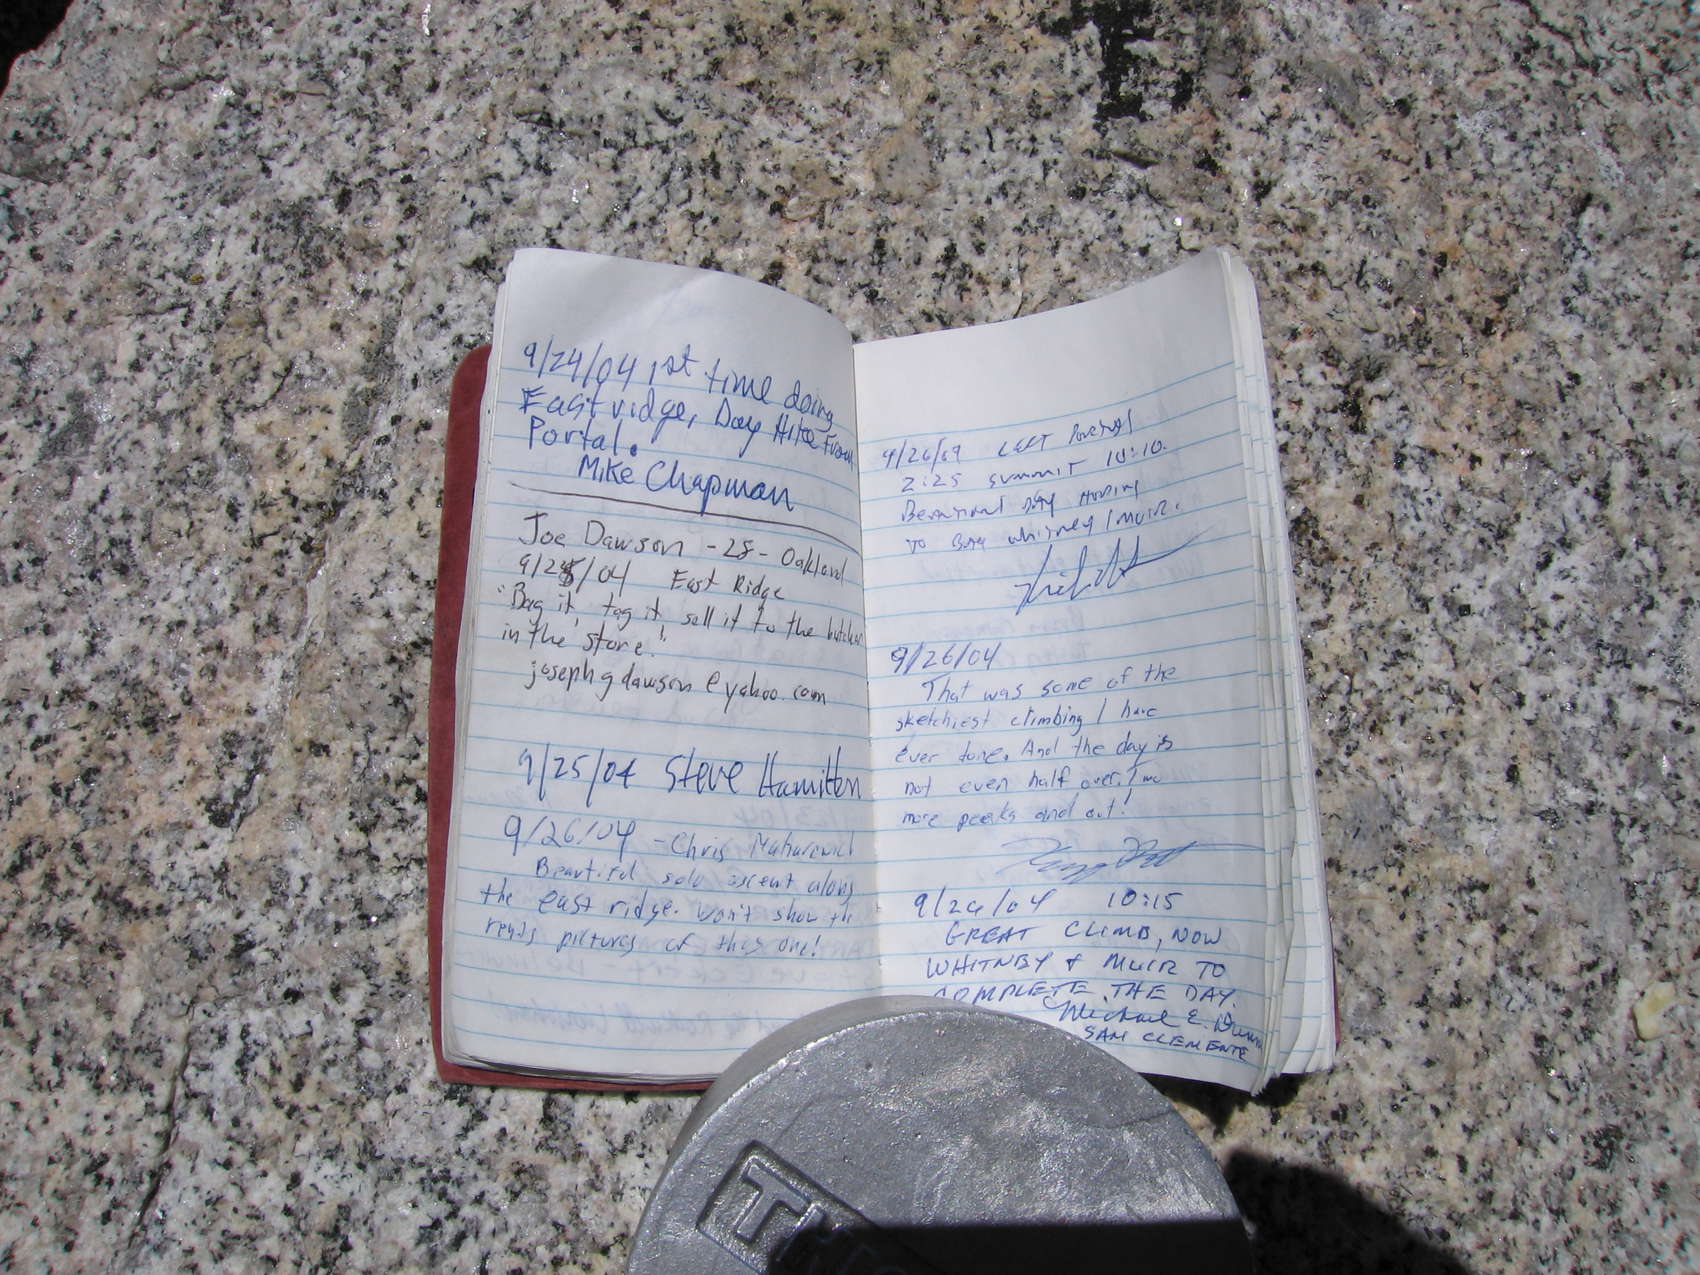 9/24/04 1st time doing
East ridge, Day Hike From
Portal.
Mike Chapman
Joe Dawson - 28 - Oakland
9/25/04 East Ridge
"Bag it, tag it, sell it to the butcher
in the store!"
josephgdawson@yahoo.com
9/25/04 Steve Hamilton
9/26/04 - Chris
Beautiful solo ascent along
the east ridge. Won't show the
pictures of this one!
9/26/04 LEFT PORTAL
2:25 SUMMIT 10:10.
BEAUTIFUL DAY
TO BAG WHITNEY / MUIR.
9/26/04
That was some of the
sketchiest climbing I have
ever done. And the day is
not even half over. Two
more peaks and out!
9/26/04 10:15
GREAT CLIMB, NOW
WHITNEY & MUIR TO
COMPLETE THE DAY.
Michael E.
SAN CLEMENTE